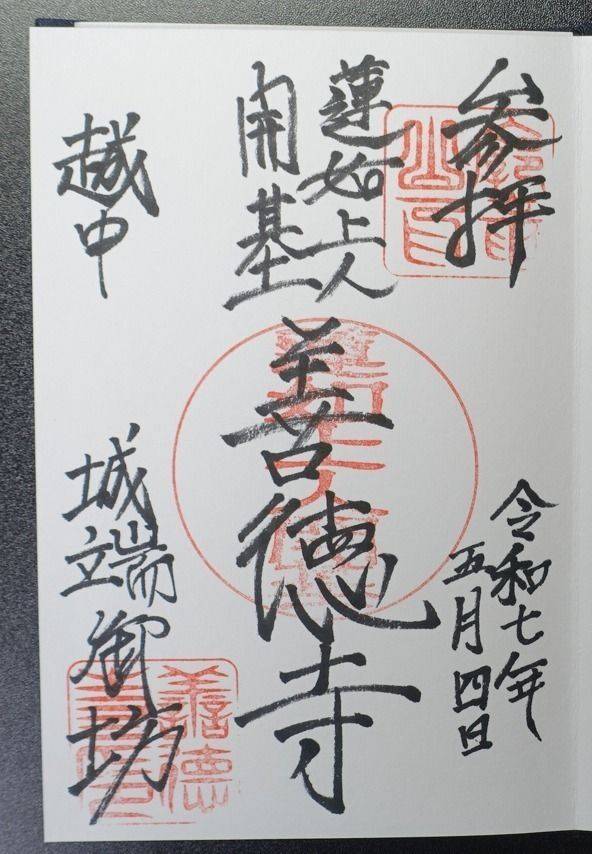 参拝
令和七年
五月四日
蓮如上人
開基
善徳寺
越中
城端御坊
善徳